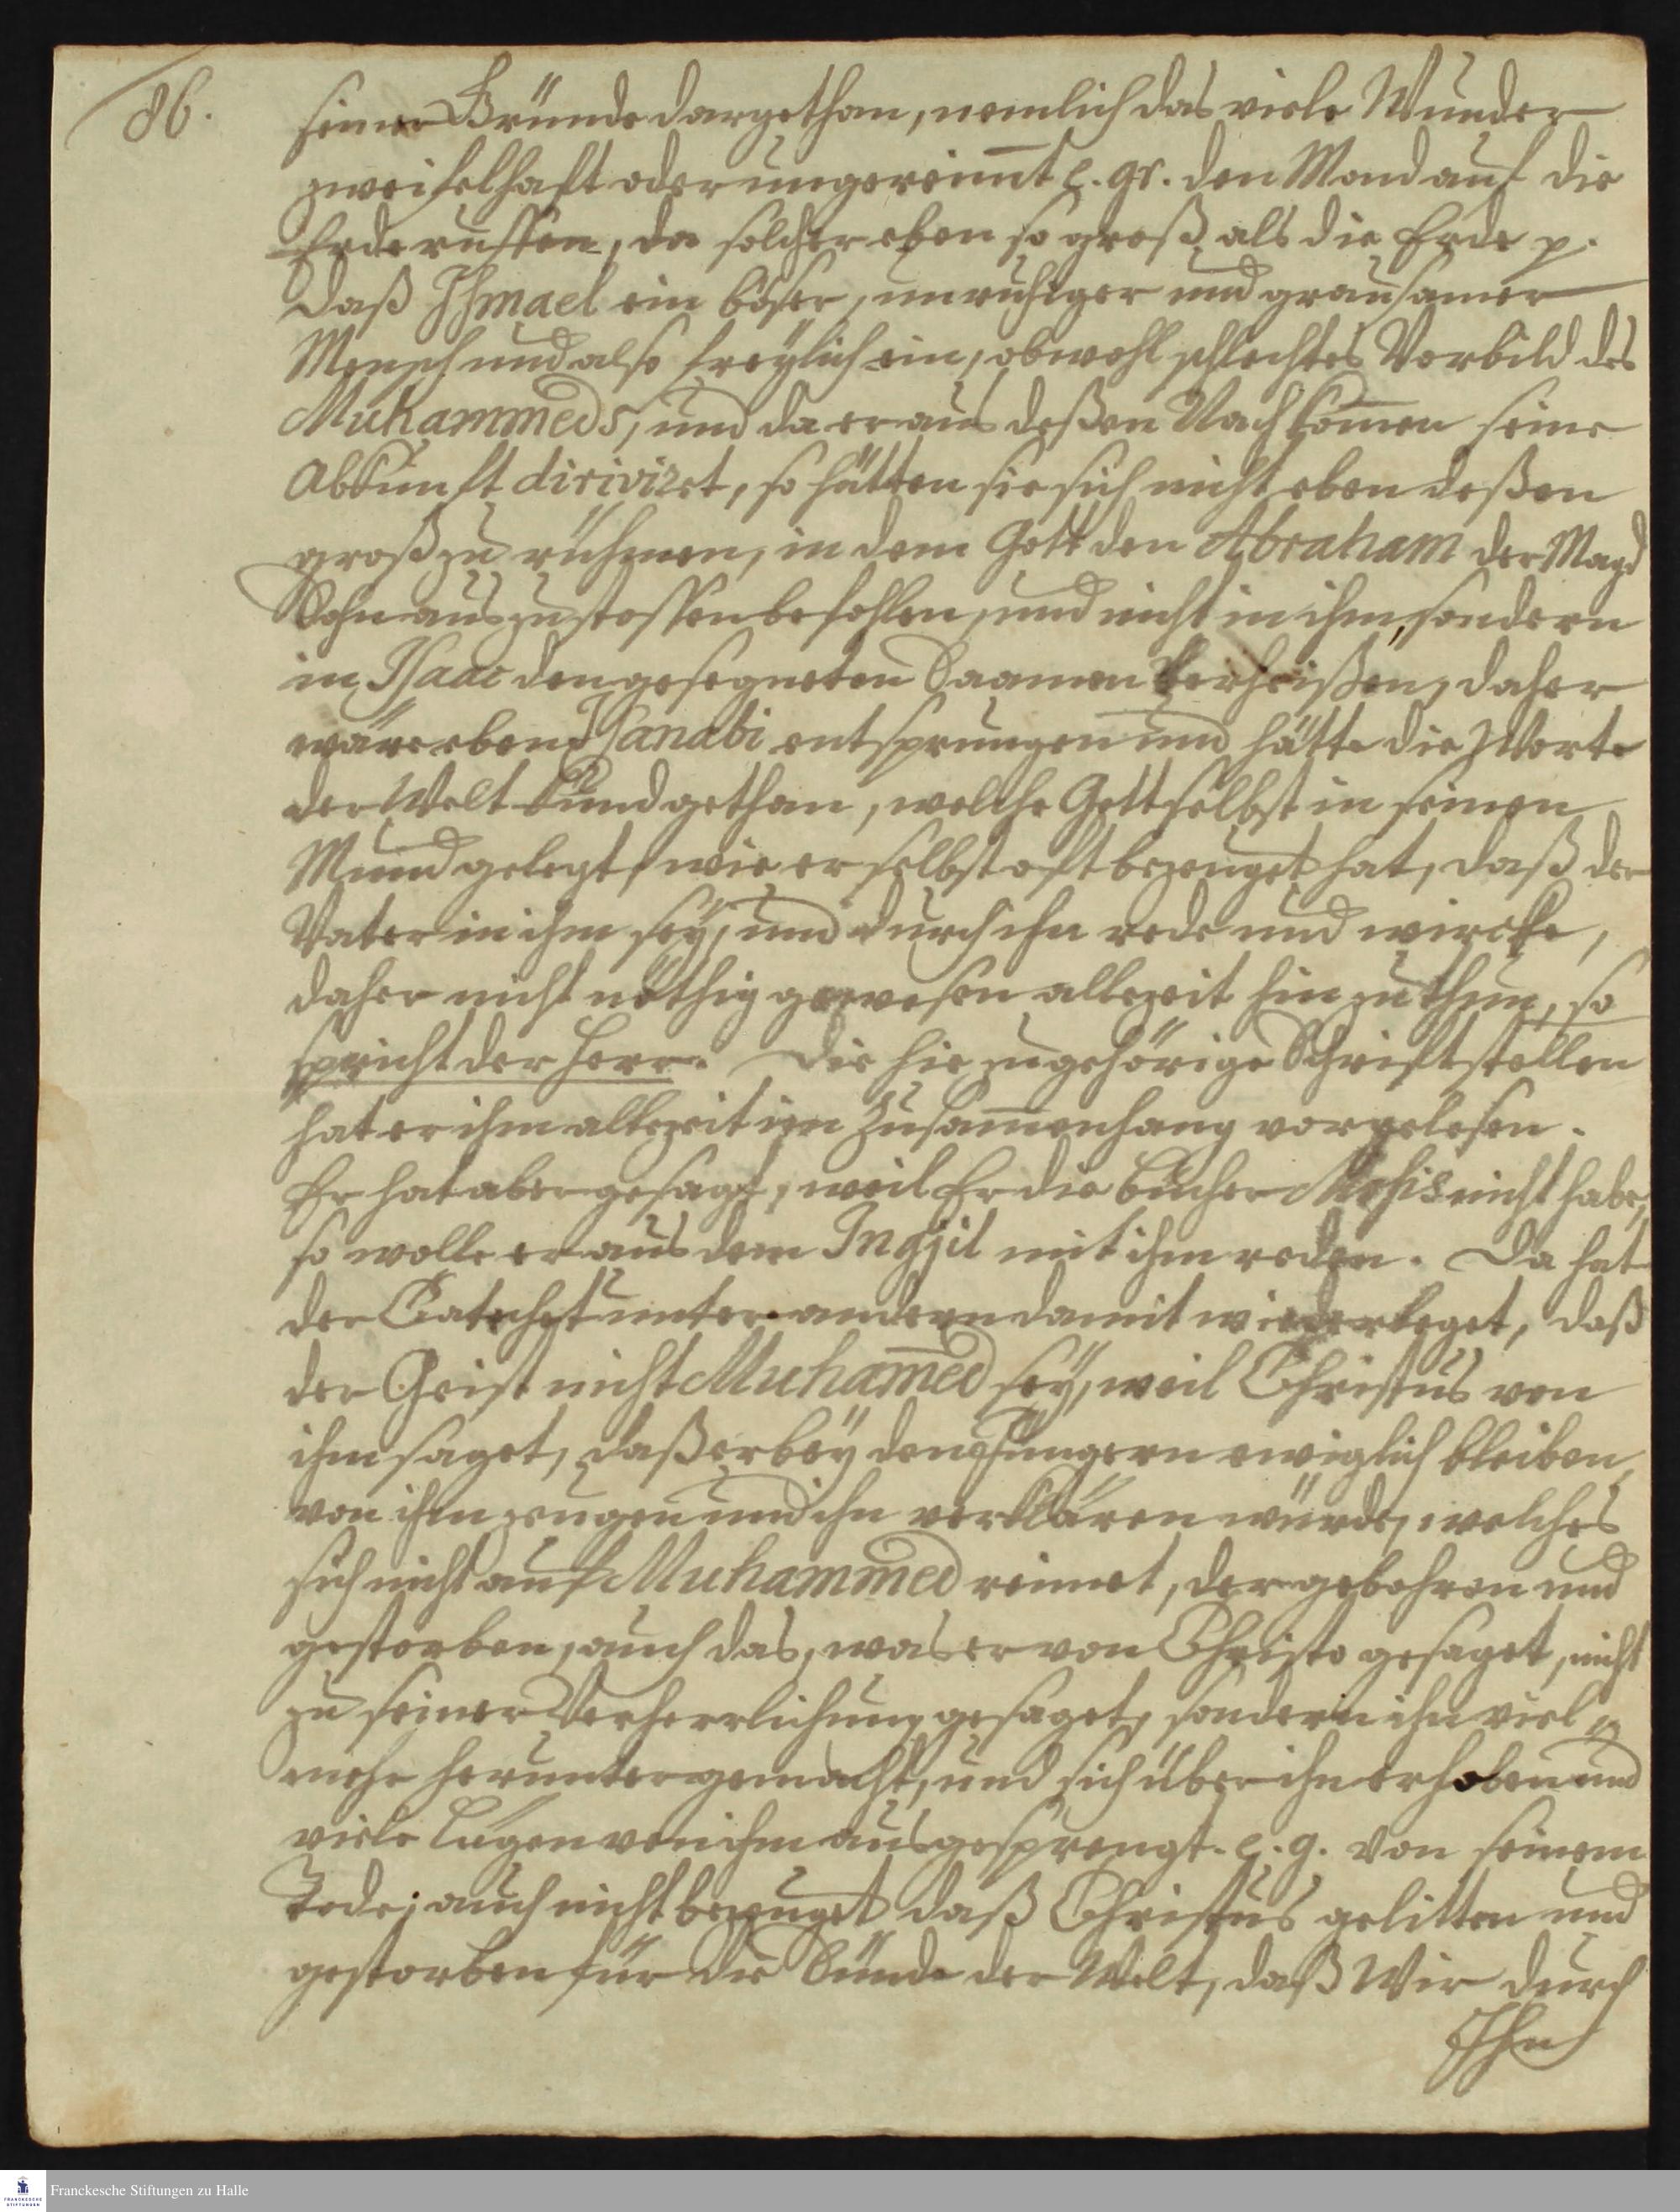 86.
seiner Gründe dargethan, nemlich das viele Wunder
zweifelhaft oder ungereimt e. gr. den Mond auf die
Erde ruffen, da solcher eben so groß als die Erde p.
Daß Ismael ein böser, unruhiger und grausamer
Mensch und also freylich ein, obwohl schlechtes Vorbild des
Muhammeds, und da er aus deßen Nachkomen seine
Abkunft dirivizet, so hätten sie sich nicht eben deßen
groß zu rühmen, in dem Gott den Abraham der Magd
Sohn auszustossen befohlen, und nicht in ihm, sondern
in Isaac den gesegneten Saamen verheißen, daher
wäre eben Isanabi entsprungen und hätte die Worte
der Welt kund gethan, welche Gott selbst in seinen
Mund gelegt, wie er selbst oft bezeuget hat, daß der
Vater in ihm sey, und durch ihn rede und wircke,
daher nicht nöthig gewesen allezeit hinzu thun, so
spricht der Herr. Die hiezu gehörige Schriftstellen
hat er ihm allezeit im Zusamenhang vorgelesen.
Er hat aber gesagt, weil Er die Bücher Mosis nicht habe,
so wolle er aus dem Ingjil mit ihm reden. Da hat
der Catechet unter andern damit wiederleget, daß
der Geist nicht Muhamed sey, weil Christus von
ihm saget, daß er bey den Jüngern ewiglich bleiben,
von ihm zeugen und ihn verklären würde, welches
sich nicht auf Muhammed reimet, der gebohren und
gestorben, auch das, was er von Christo gesaget, nicht
zu seiner Verherrlichung gesaget, sondern ihn viel-
mehr heruntergemacht, und sich über ihn erhoben und
viele Lügen von ihm ausgesprengt. e. g. von seinem
Tode; auch nicht bezeuget daß Christus gelitten und
gestorben für die Sünde der Welt, daß Wir durch
Ihn
Franckesche Stiftungen zu Halle